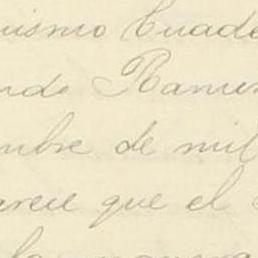 uismo Cuade
nde Ramir
mbre de mil
arece que el